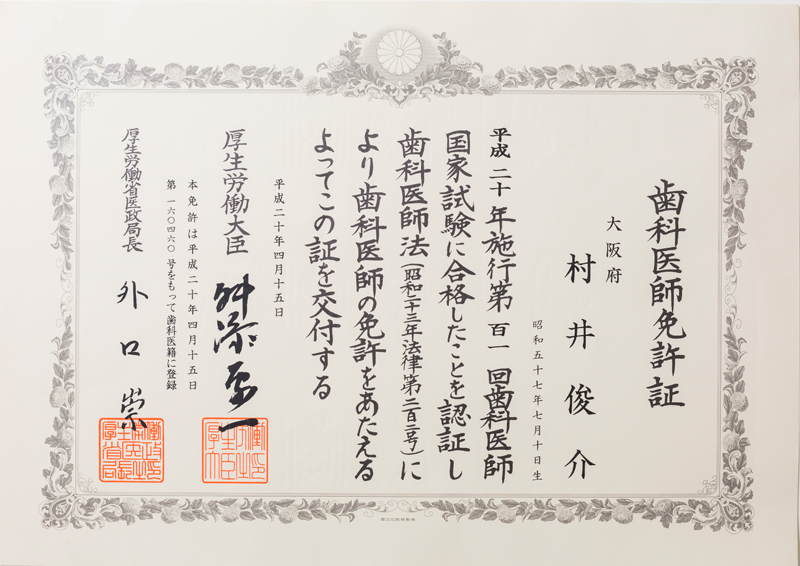 歯科医師免許証
大阪府
村井俊介
昭和五十七年七月十日生
平成二十年施行第百一回歯科医師
国家試験に合格したことを認証し
歯科医師法(昭和二十三年法律第二百二号)に
より歯科医師の免許をあたえる
よってこの証を交付する
平成二十年四月十五日
厚生労働大臣 舛添要一
本免許は平成二十年四月十五日
第一六〇四六〇号をもって歯科医籍に登録
厚生労働省医政局長 外口崇